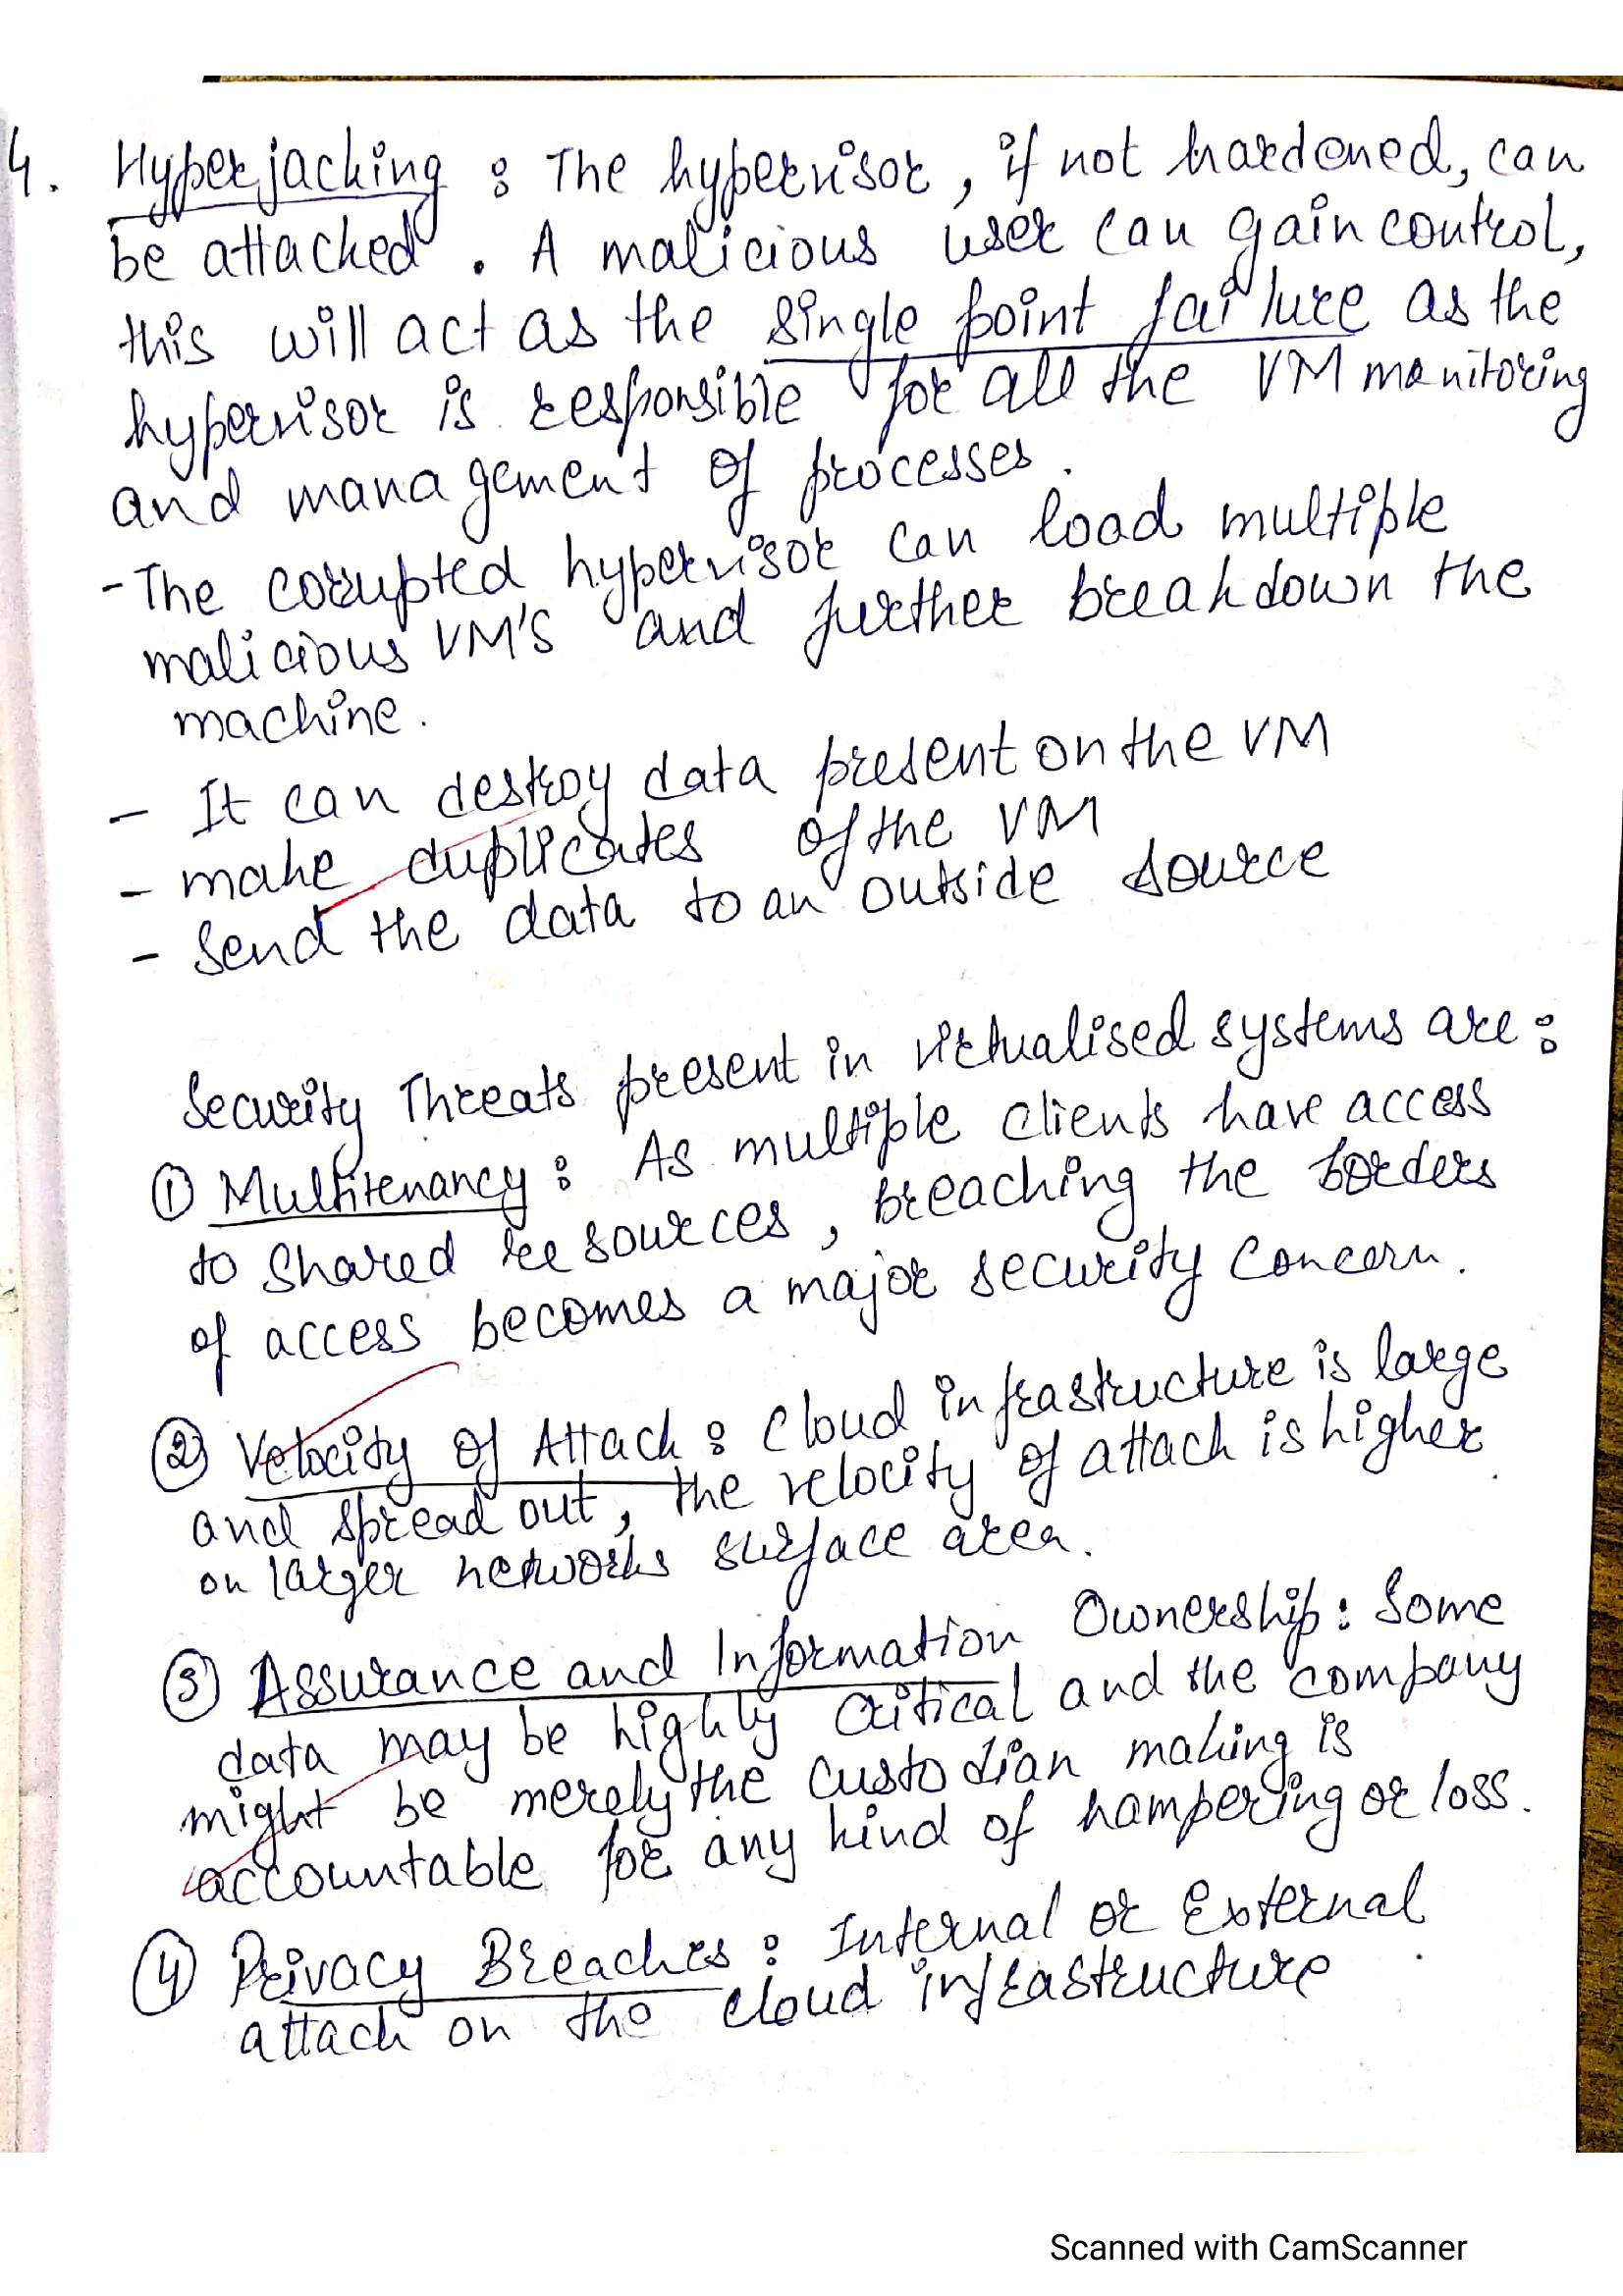 4. Hyperjacking : The hypervisor, if not hardened, can
be attacked. A malicious user can gain control,
this will act as the single point failure as the
hypervisor is responsible for all the VM monitoring
and management of processes.
- The corrupted hypervisor can load multiple
malicious VM's and further breakdown the
machine.
- It can destroy data present on the VM
- make duplicates of the VM
- Send the data to an outside source
Security Threats present in virtualised systems are :
① Multitenancy : As multiple clients have access
to shared resources, breaching the borders
of access becomes a major security concern.
② Velocity of Attack : Cloud infrastructure is large
and spread out, the velocity of attack is higher
on larger networks surface area.
③ Assurance and Information Ownership : Some
data may be highly critical and the company
might be merely the custodian making is
accountable for any kind of hampering or loss.
④ Privacy Breaches : Internal or External
attack on the cloud infrastructure.
Scanned with CamScanner